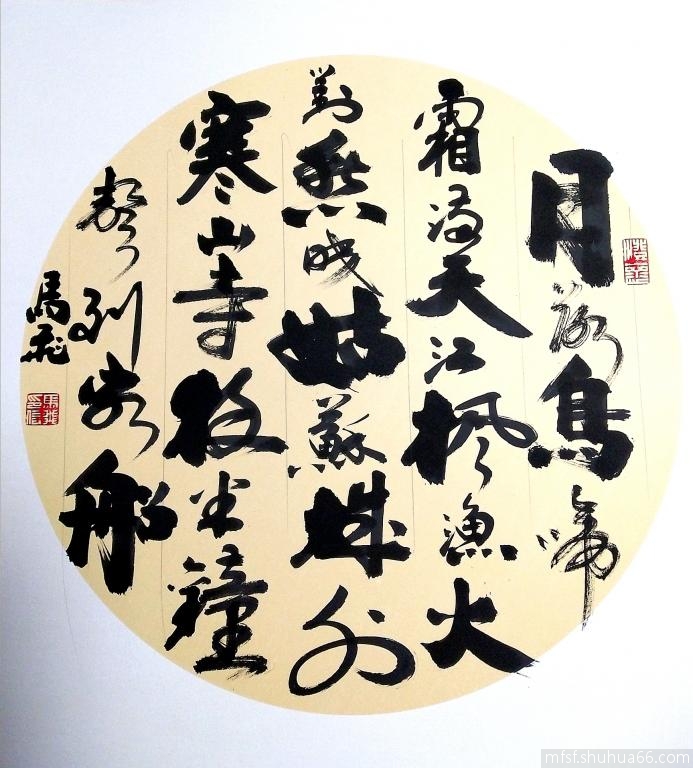 月落烏啼
霜滿天江楓漁火
對愁眠姑蘇城外
寒山寺夜半鐘
聲到客船
馬飛
馬飛印信
mfsf.shuhua66.com